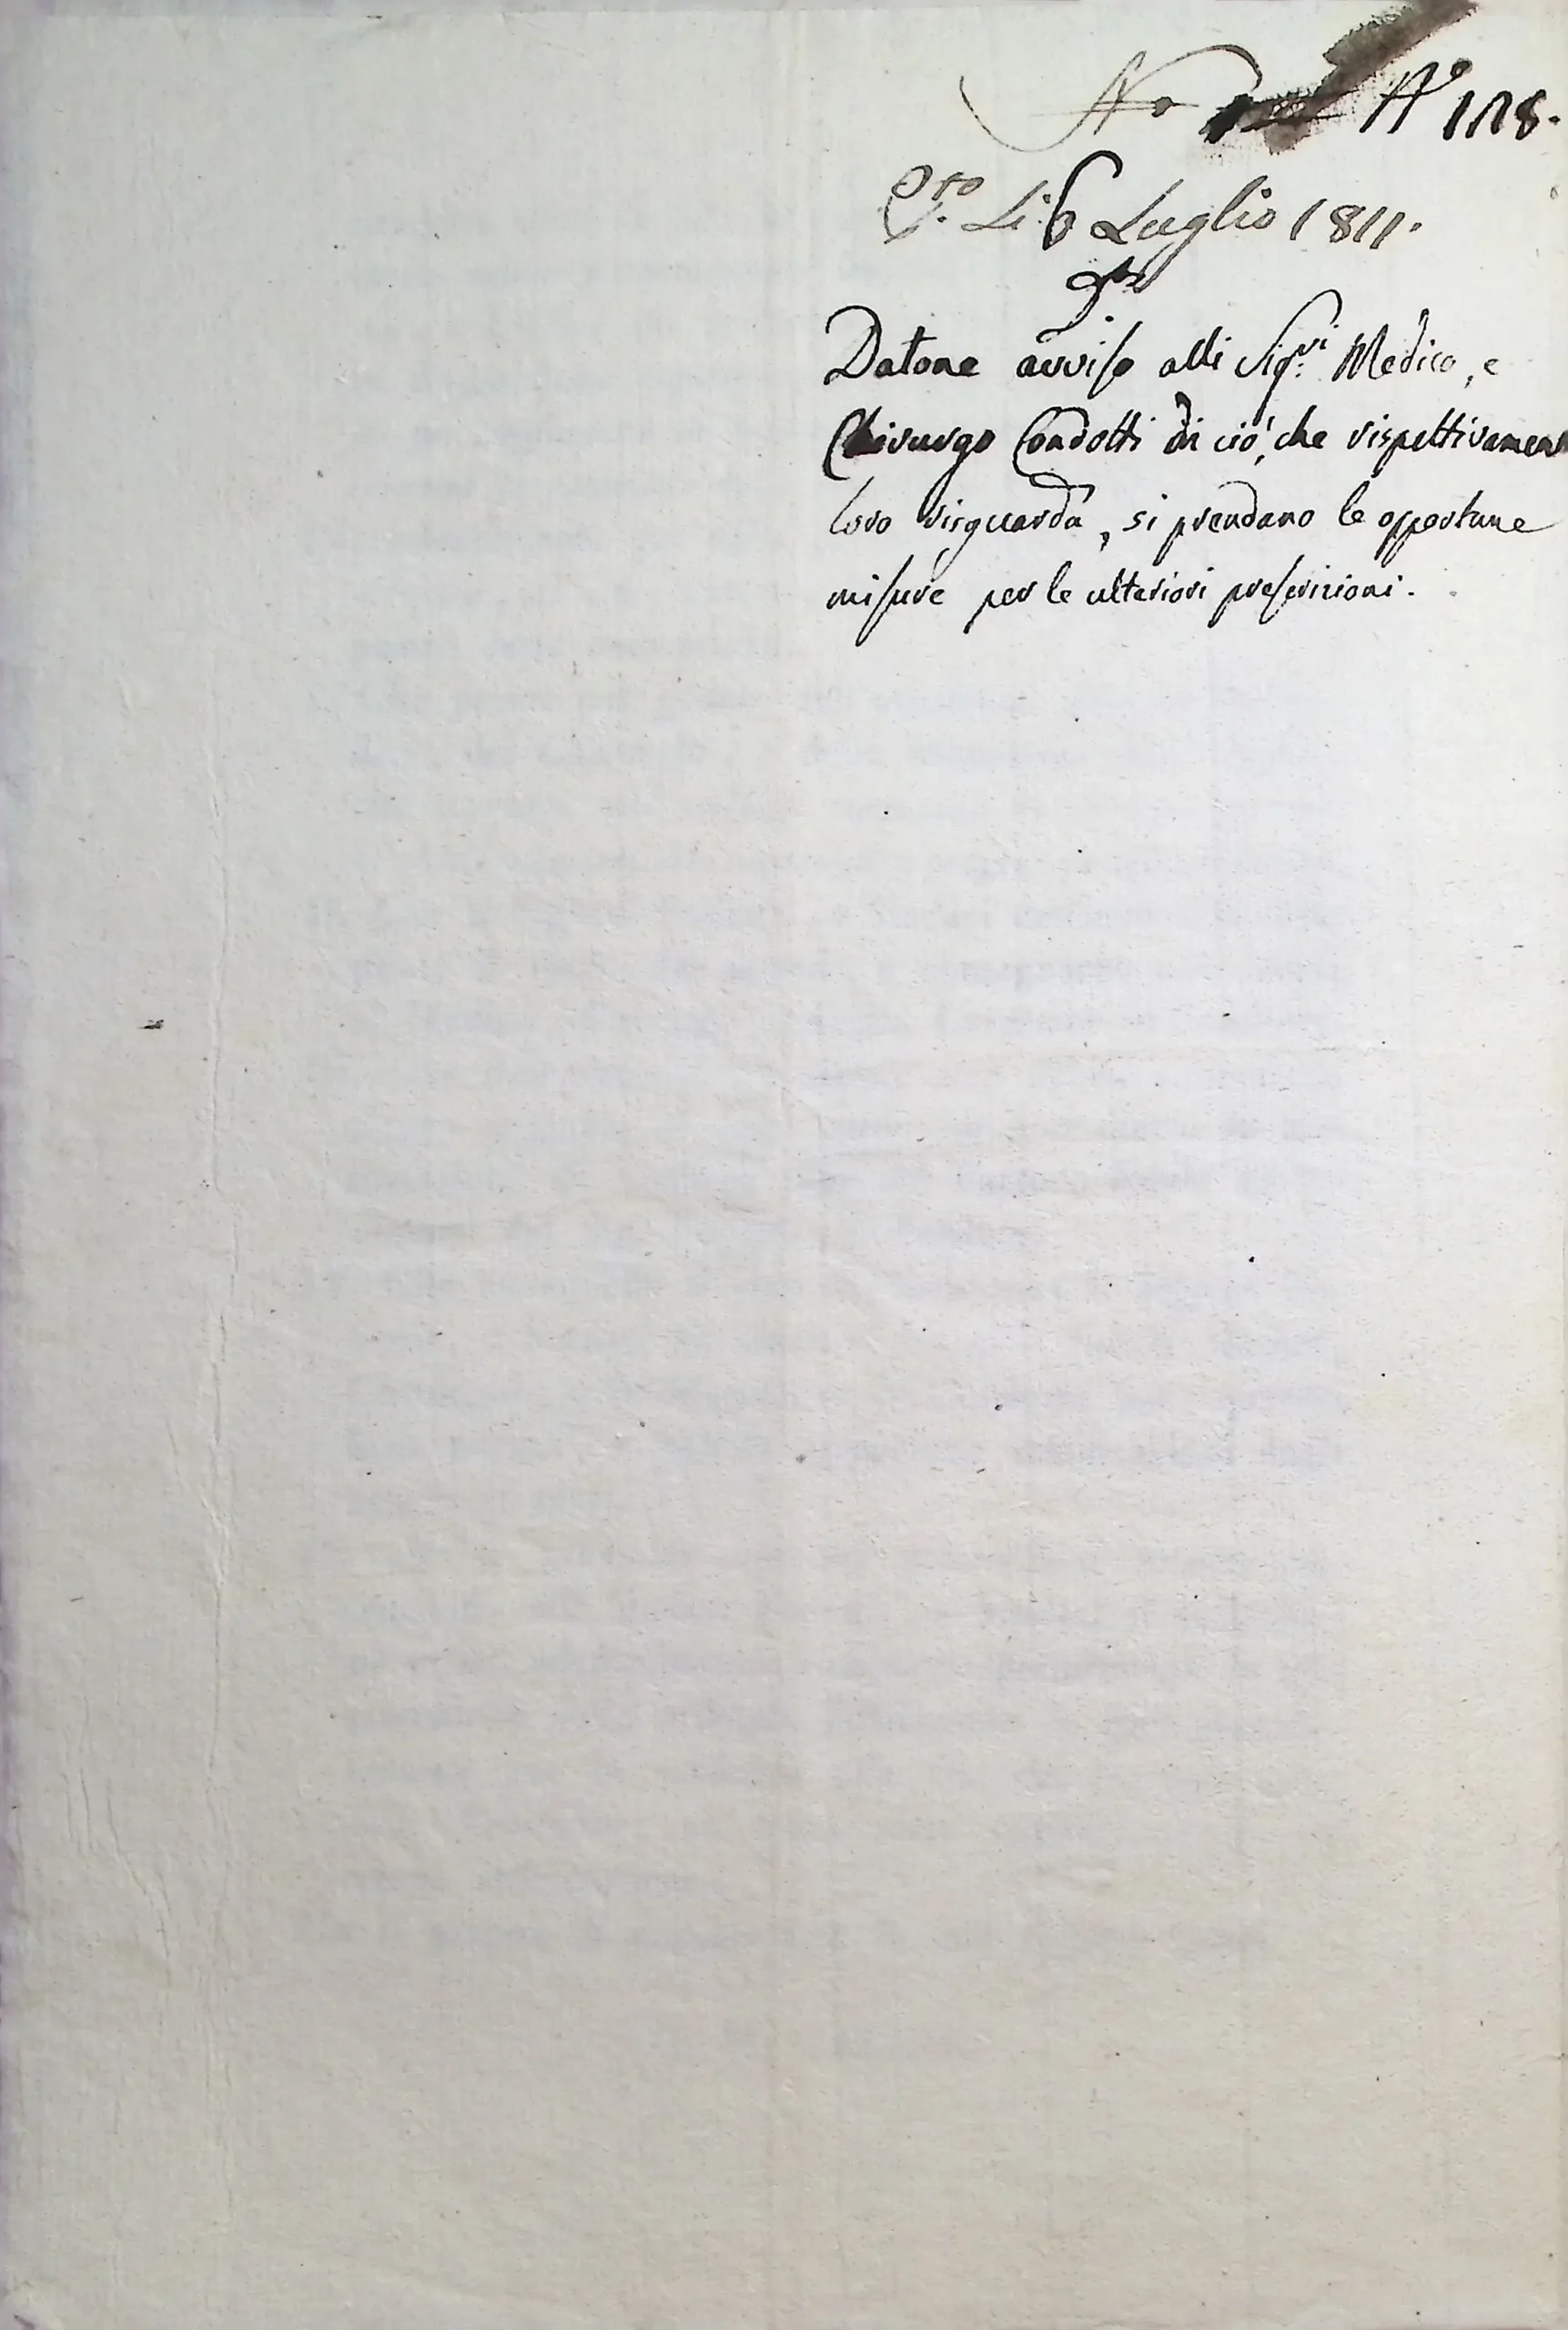 No N° 118.
P.to Li 6 Luglio 1811.
Datone avviso alli Sig.ri Medico, e
Chirurgo Condotti di ciò, che rispettivamen
loro risguarda, si prendano le opportune
misure per le ulteriori prescrizioni.